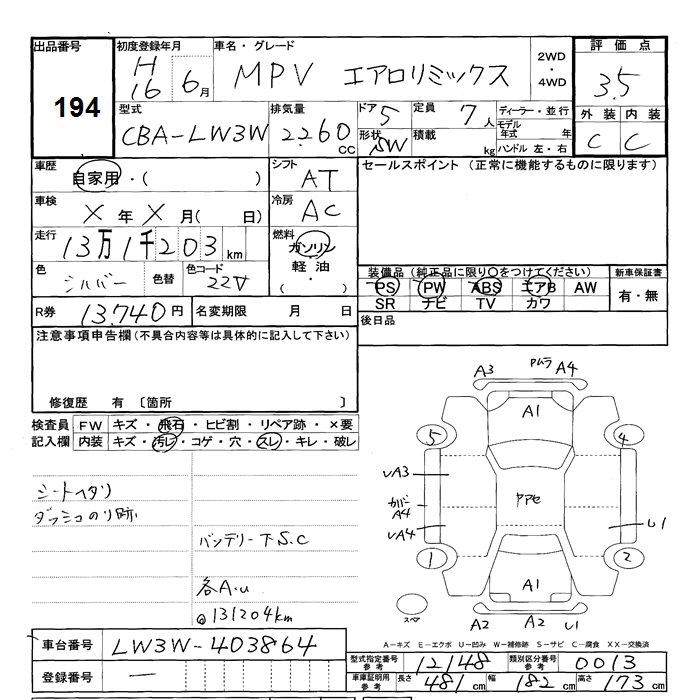 出品番号
194
初度登録年月
H
16 6月
車名・グレード
MPV エアロリミックス
2WD
・
4WD
評価点
3.5
型式
CBA-LW3W
排気量
2260
CC
ドア 5
形状 SW
定員 7人
積載 kg
ディーラー・並行
モデル
年式 年
ハンドル 左・右
外装 内装
C C
車歴
自家用・( )
シフト
AT
セールスポイント (正常に機能するものに限ります)
車検
X 年 X 月( 日)
冷房
AC
走行
13万1千203km
燃料
ガソリン
・
軽油
・
( )
色
シルバー
色替
色コード
22V
装備品 (純正品に限り○をつけてください)
新車保証書
PS PW ABS エアB AW
有・無
SR ナビ TV カワ
R券 13.740円
名変期限 月 日
後日品
注意事項申告欄 (不具合内容等は具体的に記入して下さい)
修復歴 有 〔箇所 〕
検査員
記入欄
FW キズ・飛石・ヒビ割・リペア跡・×要
内装 キズ・汚レ・コゲ・穴・スレ・キレ・破レ
シートヘタリ
ダッシュのり跡
バッテリー下S.C
各A.u
@131204km
A3 PムラA4
A1
5 4
UA3
カバー
A4
PPセ
UA4
U1
1 2
A1
スペア
A2 A2 U1
A-キズ E-エクボ U-凹み W-補修跡 S-サビ C-腐食 XX-交換済
車台番号 LW3W-403864
型式指定番号
参考
12148
類別区分番号
参考
0013
登録番号 —
車庫証明用
参考
長さ 481cm 幅 182cm 高さ 173cm